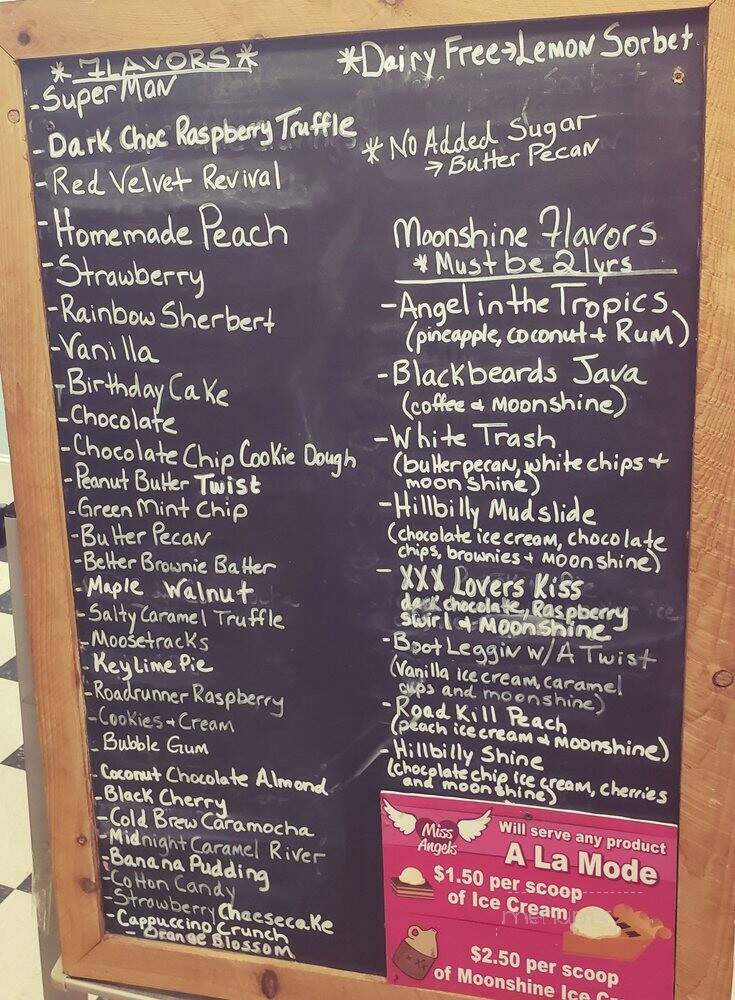 * FLAVORS *
- SuperMan
- Dark Choc Raspberry Truffle
- Red Velvet Revival
- Homemade Peach
- Strawberry
- Rainbow Sherbert
- Vanilla
- Birthday Cake
- Chocolate
- Chocolate Chip Cookie Dough
- Peanut Butter Twist
- Green Mint Chip
- Butter Pecan
- Better Brownie Batter
- Maple Walnut
- Salty Caramel Truffle
- Moosetracks
- Key lime Pie
- Roadrunner Raspberry
- Cookies + Cream
- Bubble Gum
- Coconut Chocolate Almond
- Black Cherry
- Cold Brew Caramocha
- Midnight Caramel River
- Banana Pudding
- Cotton Candy
- Strawberry Cheesecake
- Cappuccino Crunch
- Orange Blossom
* Dairy Free → Lemon Sorbet
* No Added Sugar
→ Butter Pecan
Moonshine Flavors
* Must be 21yrs
- Angel in the Tropics
(pineapple, coconut + Rum)
- Blackbeards Java
(coffee & Moonshine)
- White Trash
(butter pecan, white chips +
moonshine)
- Hillbilly Mudslide
(chocolate ice cream, chocolate
chips, brownies + Moonshine)
- XXX Lovers Kiss
dark chocolate, Raspberry
swirl & Moonshine
- Boot Leggin w/ A Twist
(Vanilla ice cream, caramel
cups and moonshine)
- Road Kill Peach
(peach ice cream & Moonshine)
- Hillbilly Shine
(chocolate chip ice cream, cherries
and moonshine)
Miss
Angels
Will serve any product
A La Mode
$1.50 per scoop
of Ice Cream
$2.50 per scoop
of Moonshine Ice